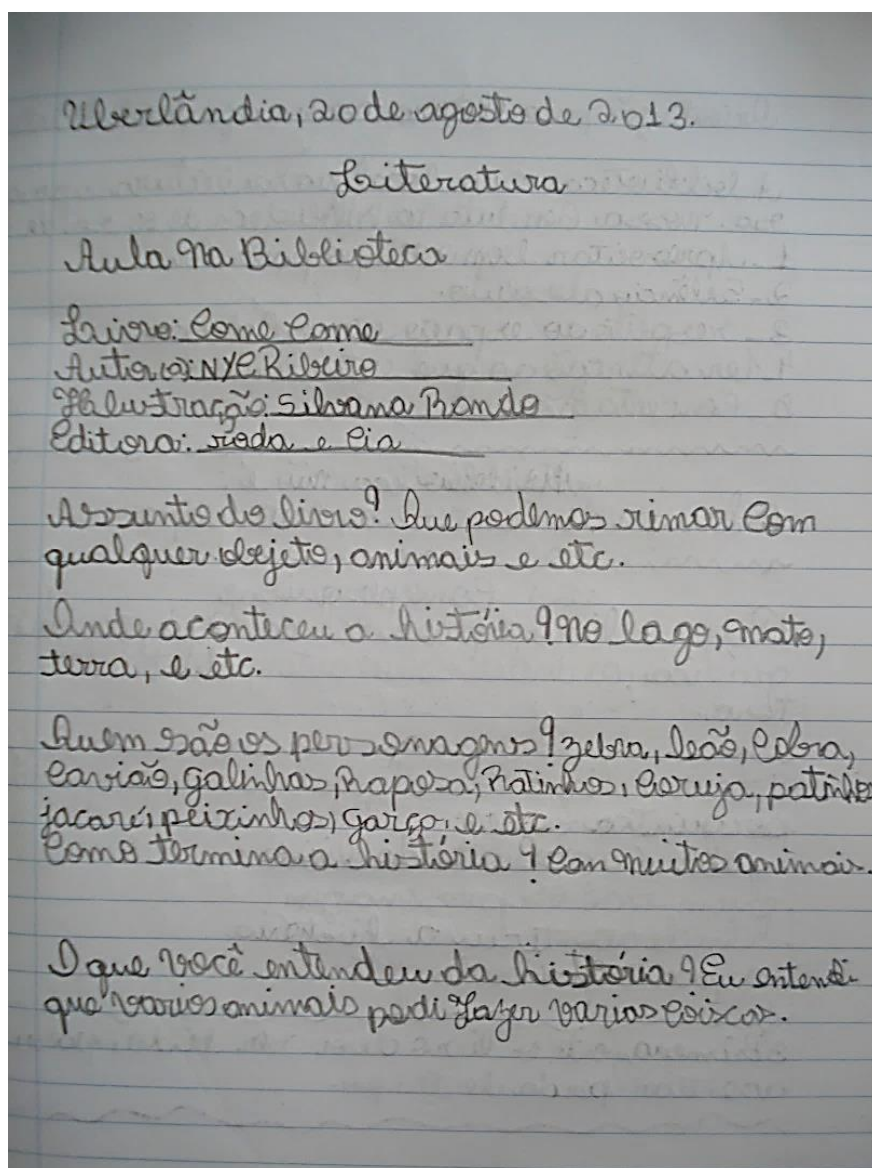 Uberlândia, 20 de agosto de 2013.
Literatura
Aula na Biblioteca
Livro: Come Come
Autor(a): NYE Ribeiro
Ilustração: Silvana Rando
Editora: roda e cia
Assunto do livro? Que podemos rimar com
qualquer objeto, animais e etc.
Onde aconteceu a história? no lago, mato,
terra, e etc.
Quem são os personagens? zebra, leão, cobra,
cavião, galinhas, Raposa, Ratinhos, coruja, patinhos
jacaré, peixinhos, garça, e etc.
Como termina a história? Com muitos animais.
O que você entendeu da história? Eu entendi
que varios animais podi fazer varias coixas.